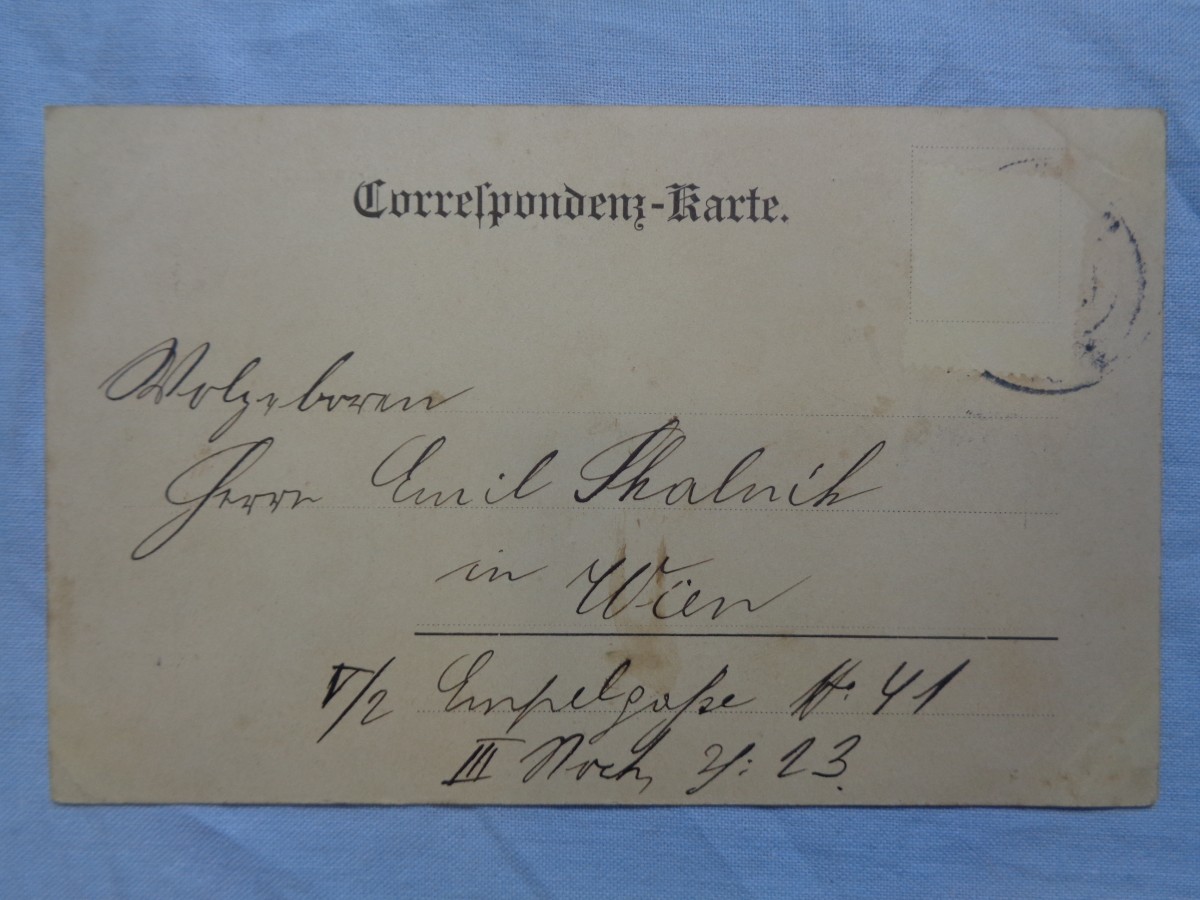 Correſpondenz-Karte.
Wolgeboren
Herrn Emil Skalnik
in Wien
V/2 Empelgaße No. 41
III Stock, T: 23.